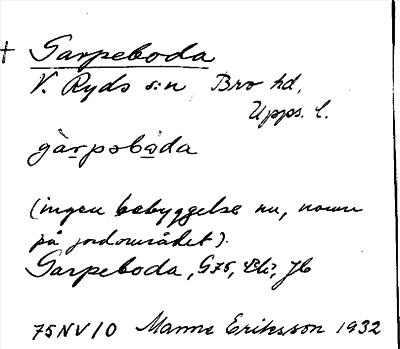 † Garpeboda
V. Ryds s:n, Bro hd,
Upps. l.
gàrpəbòda
(ingen bebyggelse nu, namn
på jordområdet).
Garpeboda, G75, Jb
75NV10 Manne Eriksson 1932